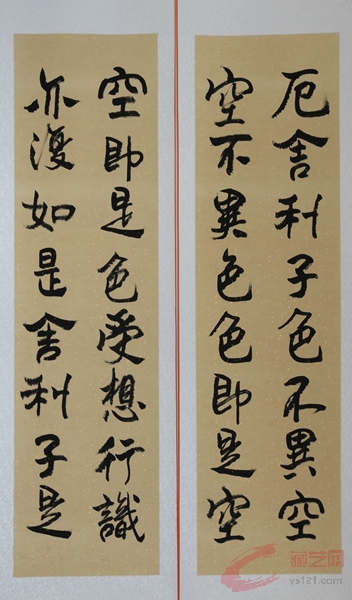 厄舍利子色不異空
空不異色色即是空
空即是色受想行識
亦復如是舍利子是
藏艺网
ys121.com